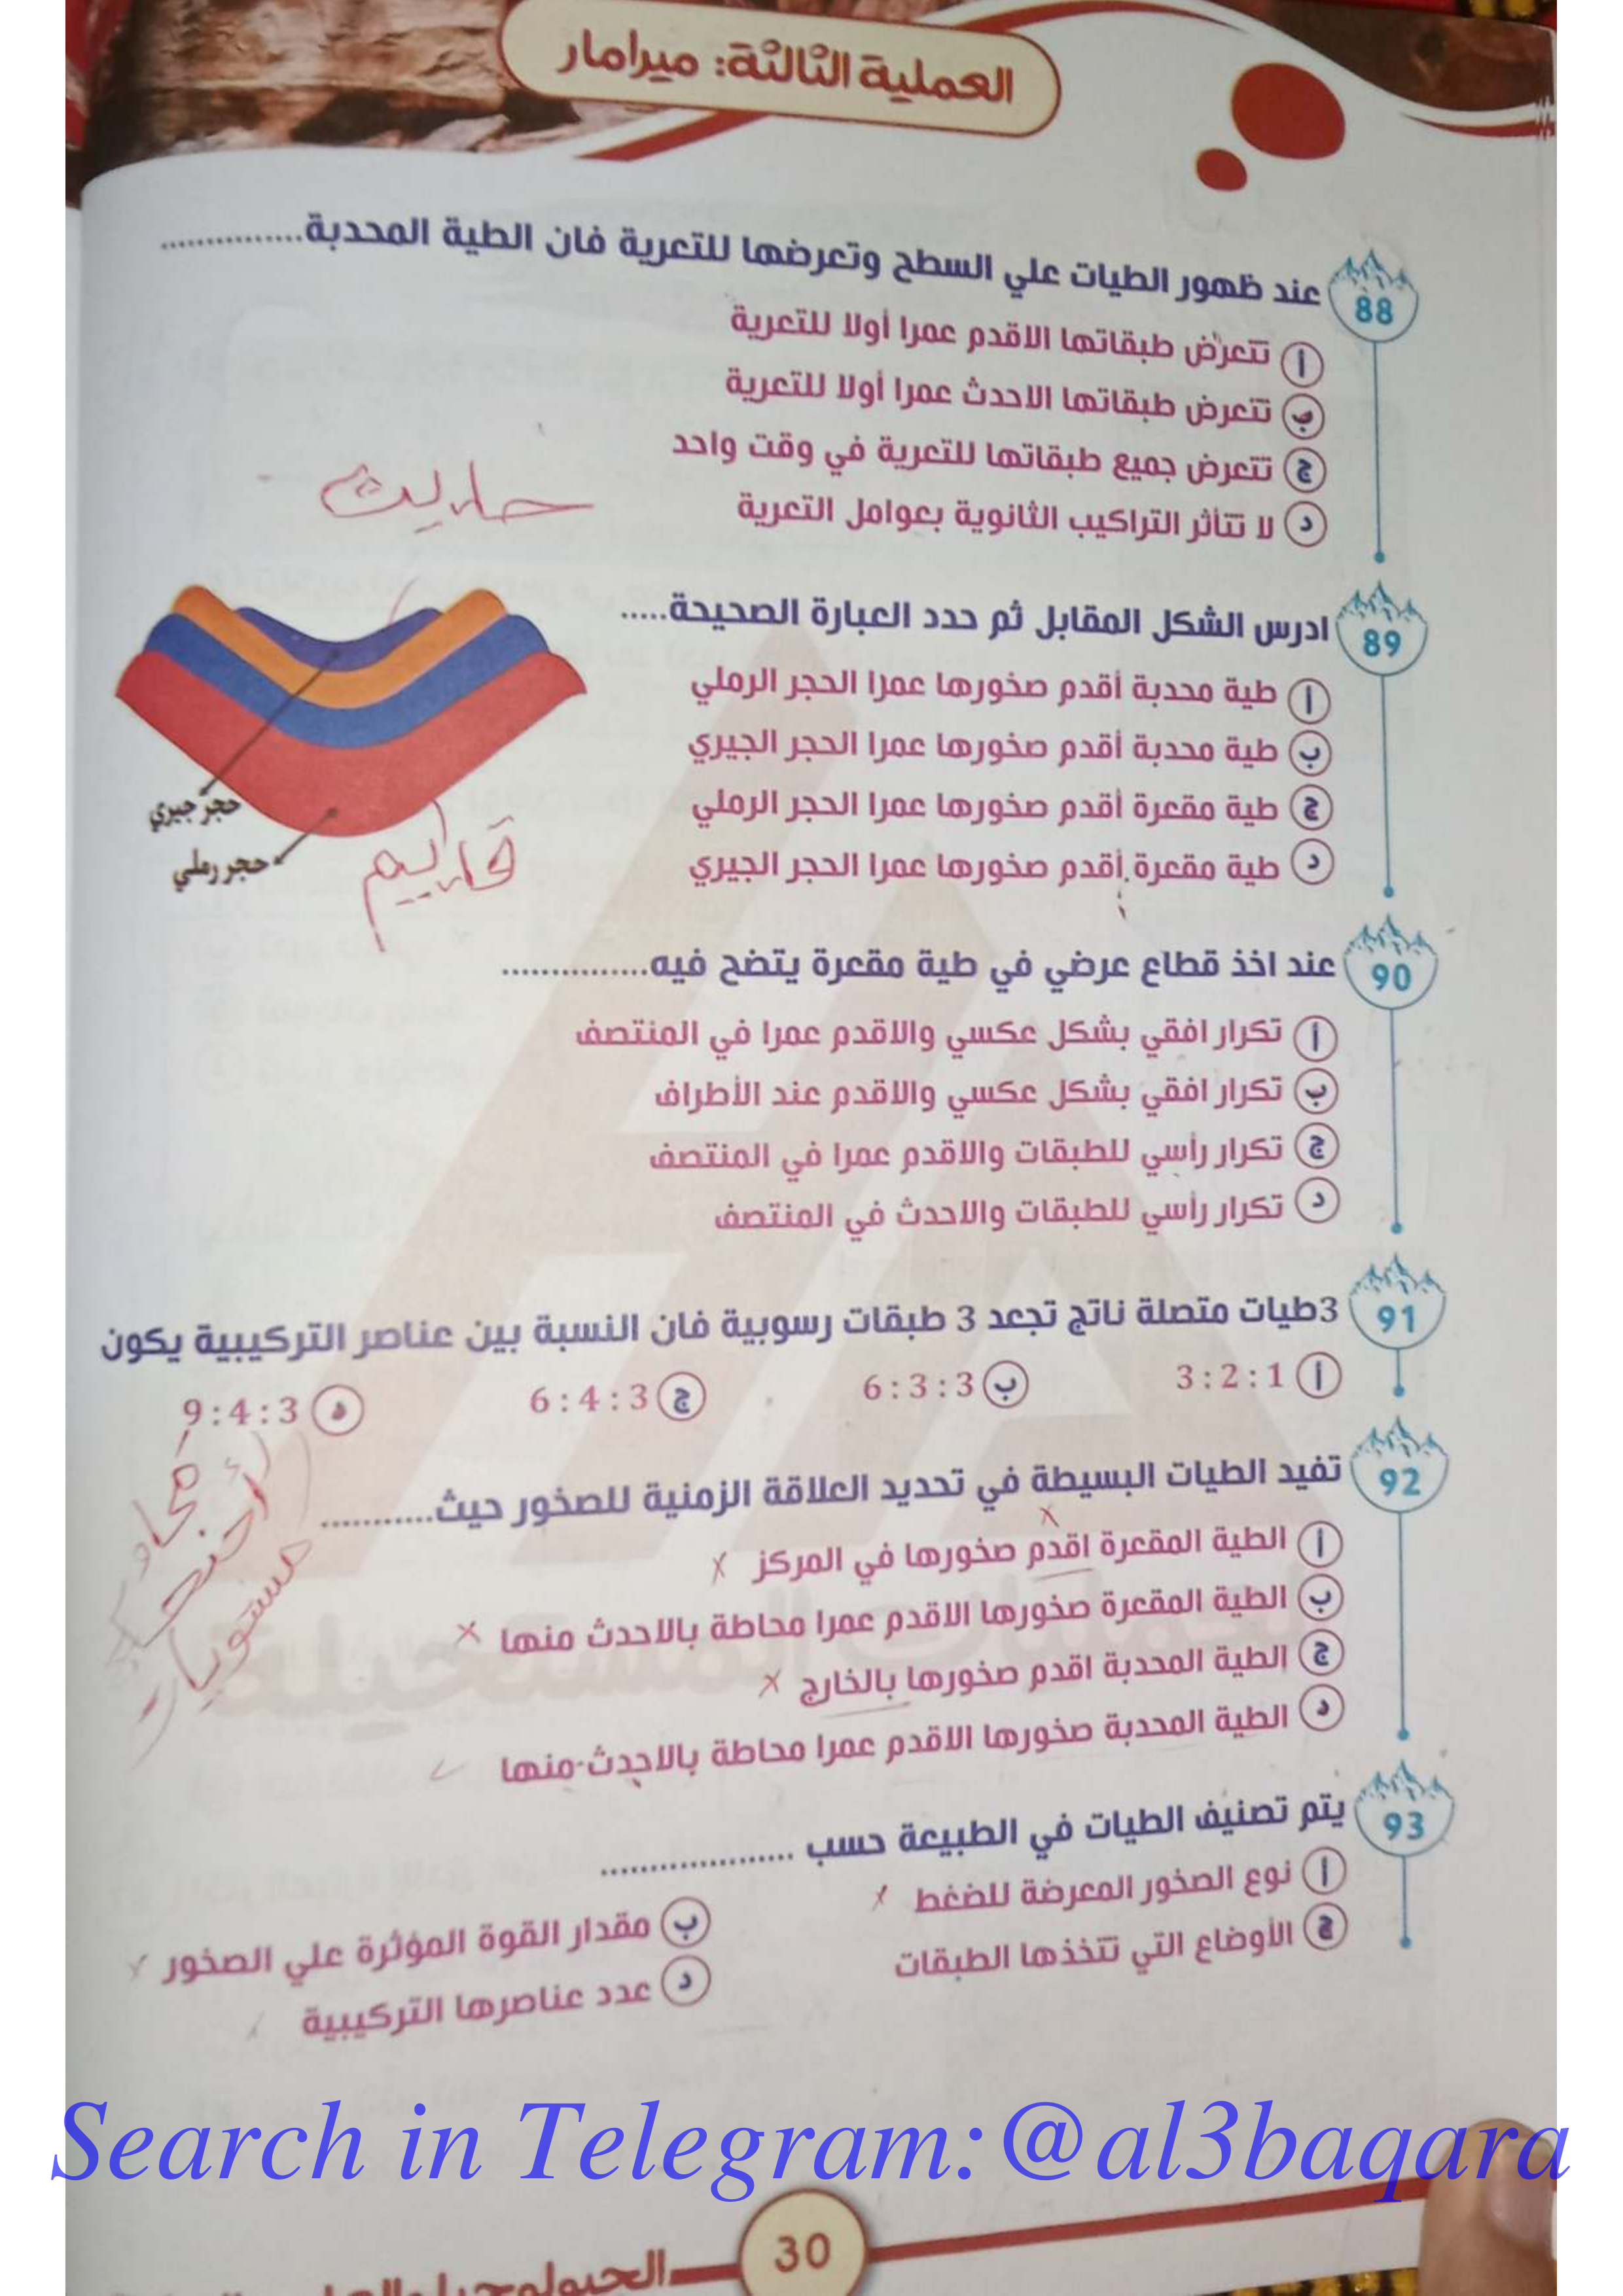 العملية الثالثة: ميرامار
88 عند ظهور الطيات علي السطح وتعرضها للتعرية فان الطية المحدبة...............
أ تتعرض طبقاتها الاقدم عمرا أولا للتعرية
ب تتعرض طبقاتها الاحدث عمرا أولا للتعرية
ج تتعرض جميع طبقاتها للتعرية في وقت واحد
د لا تتأثر التراكيب الثانوية بعوامل التعرية
89 ادرس الشكل المقابل ثم حدد العبارة الصحيحة.....
أ طية محدبة أقدم صخورها عمرا الحجر الرملي
ب طية محدبة أقدم صخورها عمرا الحجر الجيري
ج طية مقعرة أقدم صخورها عمرا الحجر الرملي
د طية مقعرة أقدم صخورها عمرا الحجر الجيري
حجر جيري
حجر رملي
90 عند اخذ قطاع عرضي في طية مقعرة يتضح فيه...............
أ تكرار افقي بشكل عكسي والاقدم عمرا في المنتصف
ب تكرار افقي بشكل عكسي والاقدم عند الأطراف
ج تكرار رأسي للطبقات والاقدم عمرا في المنتصف
د تكرار رأسي للطبقات والاحدث في المنتصف
91 3طيات متصلة ناتج تجعد 3 طبقات رسوبية فان النسبة بين عناصر التركيبية يكون
أ 3 : 2 : 1 ب 6 : 3 : 3 ج 6 : 4 : 3 د 9 : 4 : 3
أجنحة
مستويات
92 تفيد الطيات البسيطة في تحديد العلاقة الزمنية للصخور حيث...........
أ الطية المقعرة اقدم صخورها في المركز
ب الطية المقعرة صخورها الاقدم عمرا محاطة بالاحدث منها
ج الطية المحدبة اقدم صخورها بالخارج
د الطية المحدبة صخورها الاقدم عمرا محاطة بالاحدث منها
93 يتم تصنيف الطيات في الطبيعة حسب ....................
أ نوع الصخور المعرضة للضغط
ب مقدار القوة المؤثرة علي الصخور
ج الأوضاع التي تتخذها الطبقات
د عدد عناصرها التركيبية
Search in Telegram:@al3baqara
30